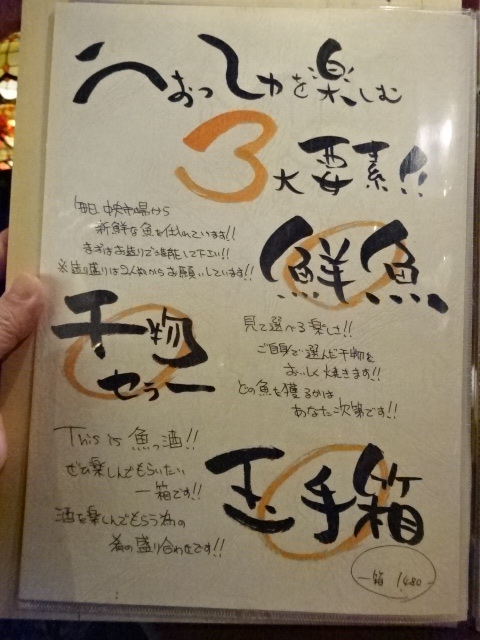 うおっしゅを楽しむ
3大要素!!
鮮魚
毎日 中央市場から
新鮮な魚を仕入れています!!
まずはお造りでご堪能して下さい!!
※造り盛りは2人前からお願いしています!!
干物セラー
見て選べる楽しさ!!
ご自身で選んだ干物を
おいしく焼きます!!
どの魚を獲るかは
あなた次第です!!
玉手箱
This is 魚っ酒!!
ぜひ楽しんでもらいたい
一箱です!!
酒を楽しんでもらう為の
肴の盛り合わせです!!
一箱 1,480-